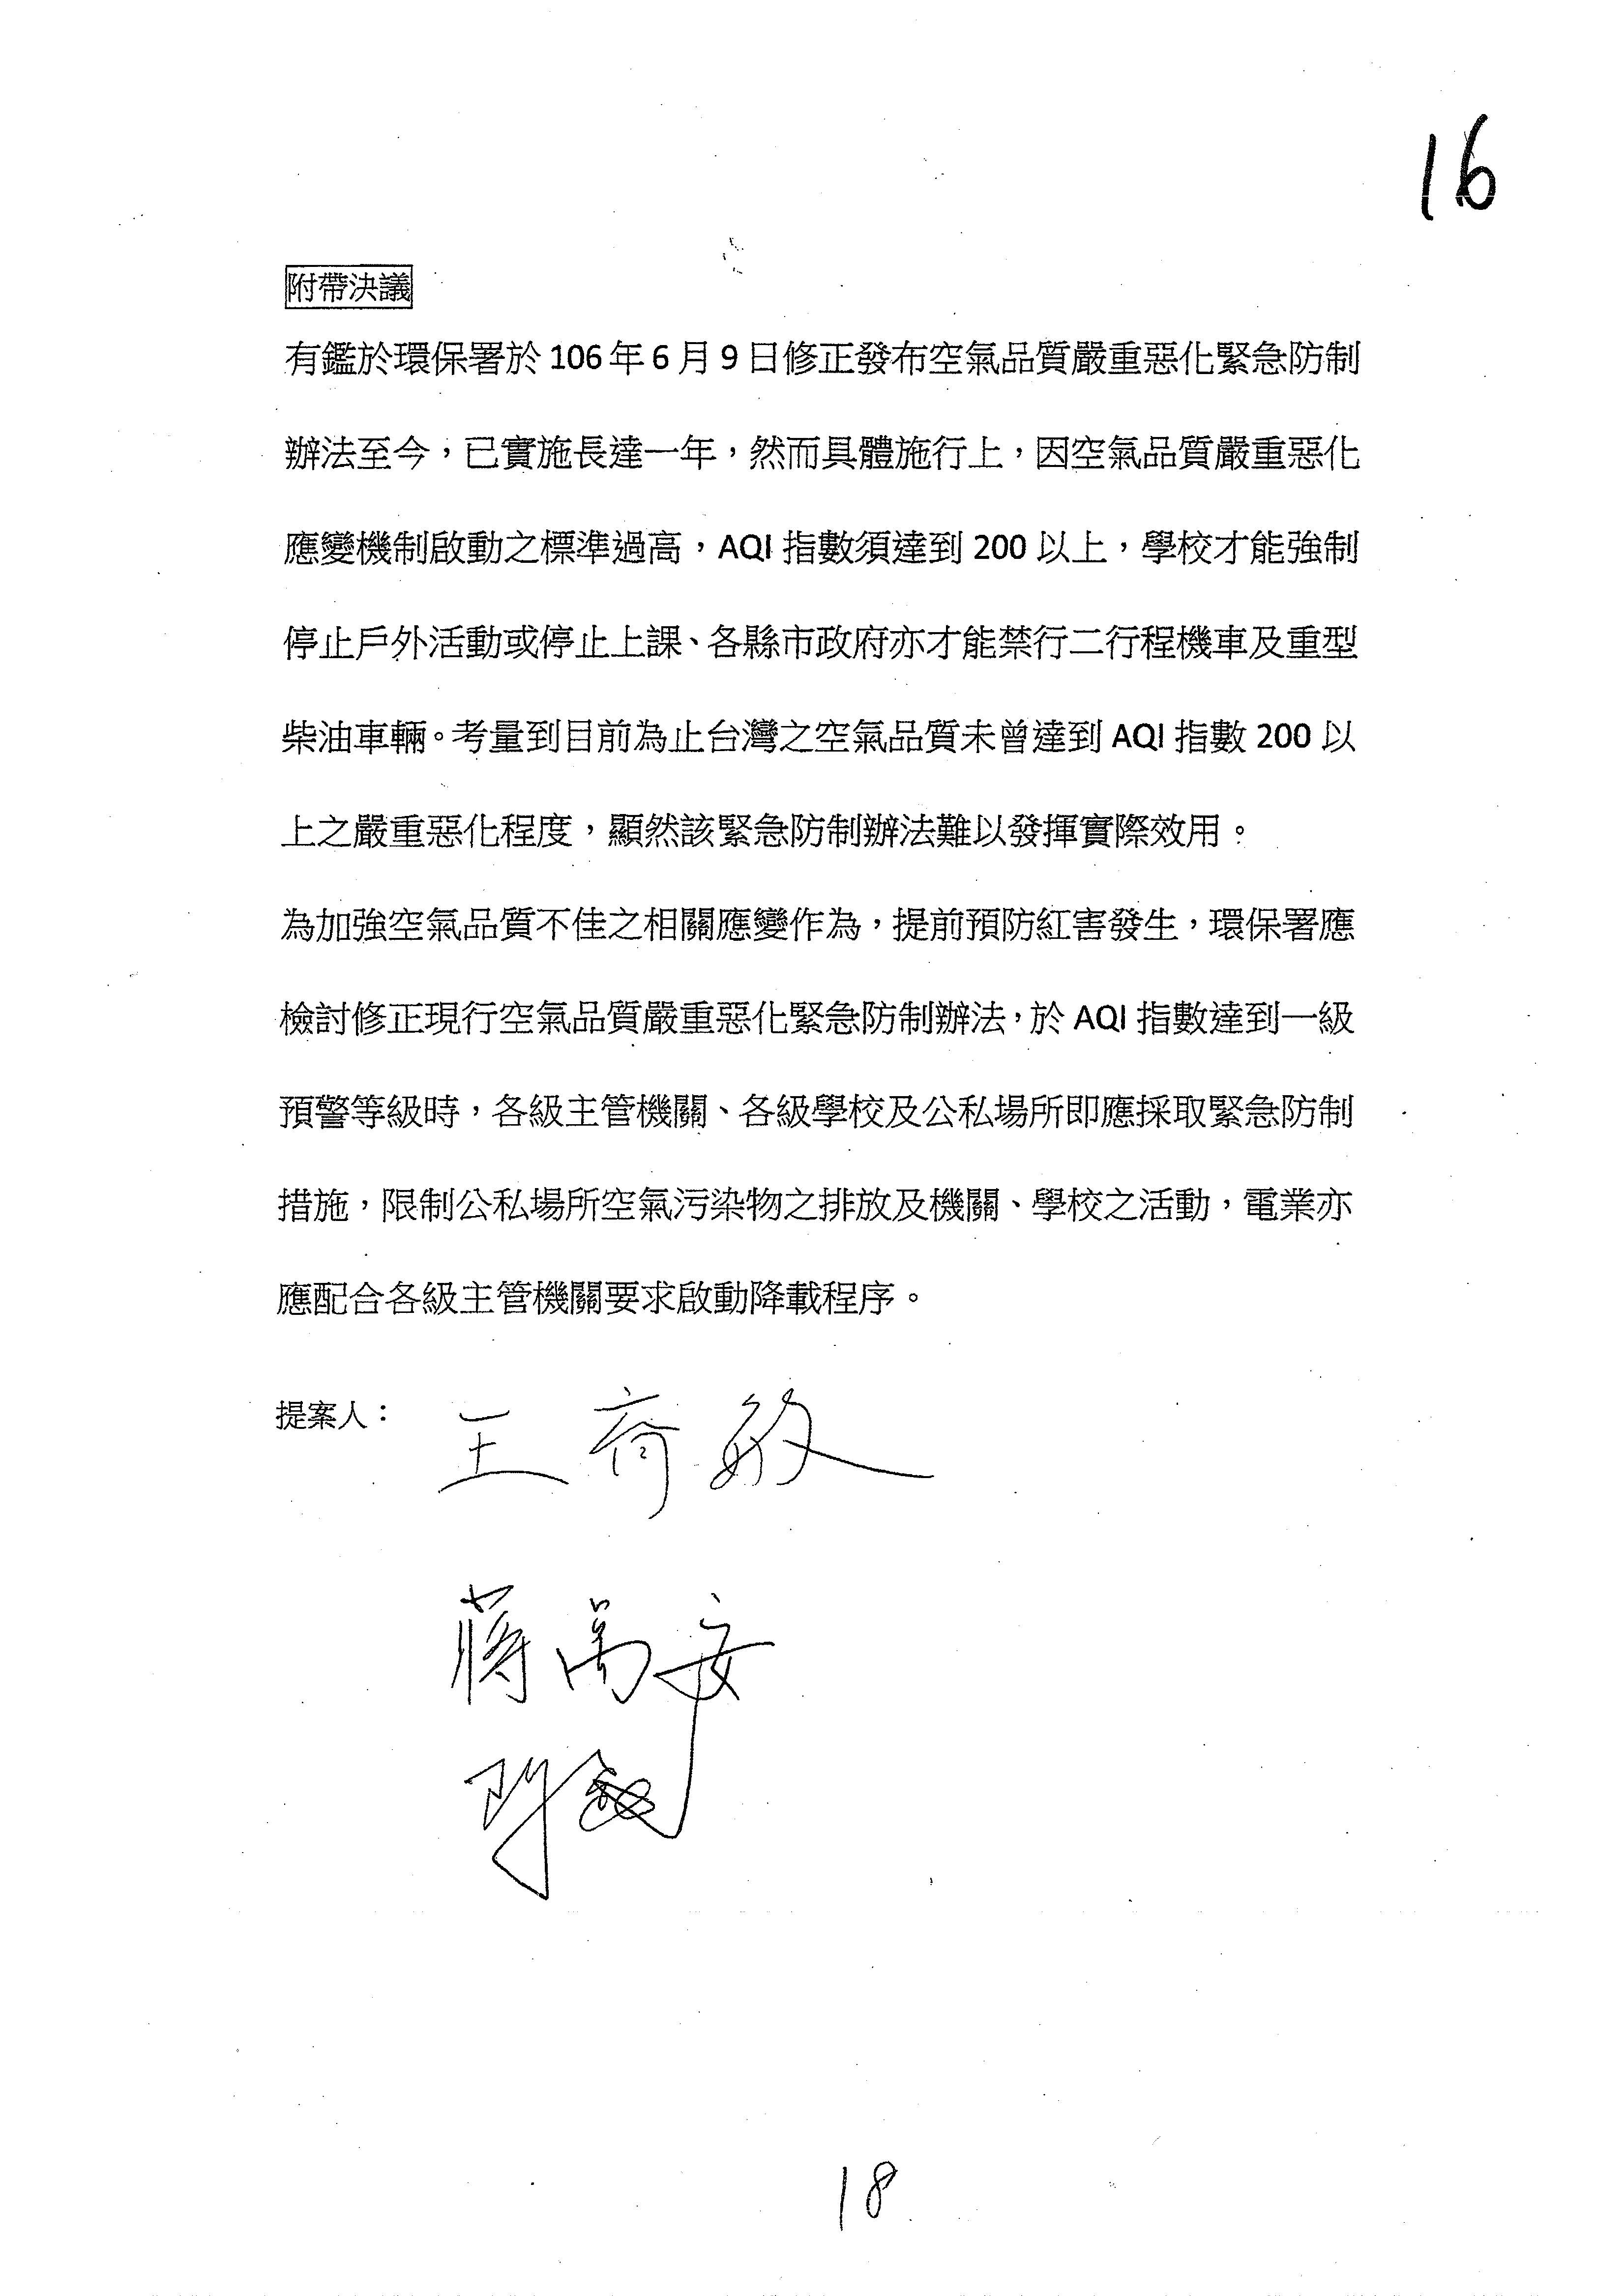 16
附帶決議
有鑑於環保署於106年6月9日修正發布空氣品質嚴重惡化緊急防制
辦法至今，已實施長達一年，然而具體施行上，因空氣品質嚴重惡化
應變機制啟動之標準過高，AQI 指數須達到 200 以上，學校才能強制
停止戶外活動或停止上課、各縣市政府亦才能禁行二行程機車及重型
柴油車輛。考量到目前為止台灣之空氣品質未曾達到 AQI 指數 200 以
上之嚴重惡化程度，顯然該緊急防制辦法難以發揮實際效用。
為加強空氣品質不佳之相關應變作為，提前預防紅害發生，環保署應
檢討修正現行空氣品質嚴重惡化緊急防制辦法，於 AQI 指數達到一級
預警等級時，各級主管機關、各級學校及公私場所即應採取緊急防制
措施，限制公私場所空氣污染物之排放及機關、學校之活動，電業亦
應配合各級主管機關要求啟動降載程序。
提案人：
王育敏
蔣萬安
18